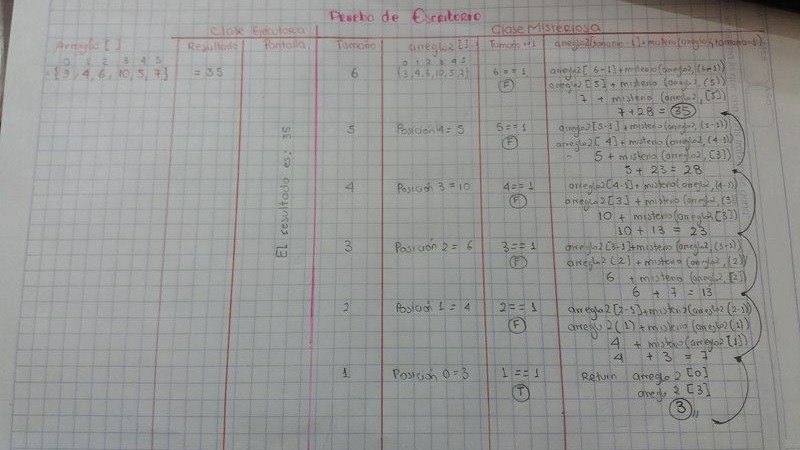 Prueba de Escritorio
Clase Ejecutora Clase Misteriosa
Arreglo [ ] Resultado Pantalla Tamaño arreglo2 [ ] Tamaño==1 arreglo2[tamaño-1]+misterio(arreglo2,tamaño-1)
0 1 2 3 4 5 0 1 2 3 4 5
={3,4,6,10,5,7} =35 6 {3,4,6,10,5,7} 6==1 arreglo2[6-1]+misterio(arreglo2,(6-1))
F arreglo2[5]+misterio(arreglo2,(5))
7 + misterio (arreglo2,[5])
7+28=35
El resultado es: 35
5 Posición 4=5 5==1 arreglo2[5-1]+misterio(arreglo2,(5-1))
F arreglo2[4]+misterio(arreglo2,(4-1))
5 + misterio(arreglo2,[3])
5 + 23 = 28
4 Posición 3=10 4==1 arreglo2[4-1]+misterio(arreglo2,(4-1))
F arreglo2[3]+misterio(arreglo2,(3))
10 + misterio(arreglo2[3])
10 + 13 = 23
3 Posición 2=6 3==1 arreglo2[3-1]+misterio(arreglo2,(3-1))
F arreglo2(2)+misterio(arreglo2,(2))
6 + misterio(arreglo2,[2])
6 + 7 = 13
2 Posición 1=4 2==1 arreglo2[2-1]+misterio(arreglo2(2-1))
F arreglo2(1)+misterio(arreglo2(1))
4 + misterio(arreglo2[1])
4 + 3 = 7
1 Posición 0=3 1==1 Return arreglo2[0]
T arreglo2[3]
3